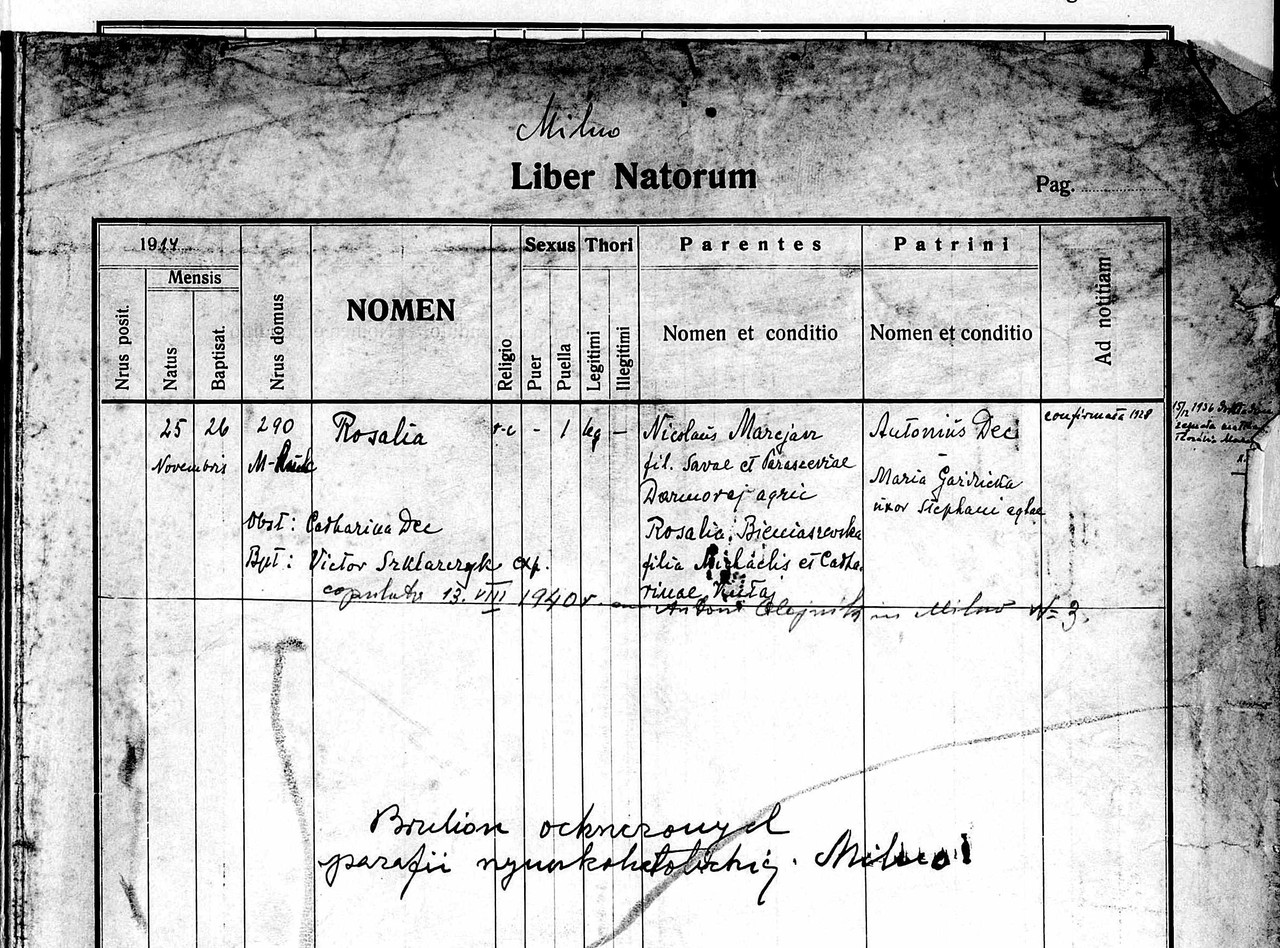 Milno
Liber Natorum
Pag.
1914
Sexus Thori Parentes Patrini
Mensis
Nrus posit.
Natus
Baptisat.
Nrus domus
NOMEN
Religio
Puer
Puella
Legitimi
Illegitimi
Nomen et conditio
Nomen et conditio
Ad notitiam
25 26 290 Rosalia r-c - 1 leg — Nicolaus Marcjan Antonius Dec confirmata 1928
Novembris
fil. Savae et Parasceviae
Maria
Darmoraj agric
uxor Stephani aglae
Obst: Catharina Dec
Rosalia Bieniaszewska
Bpt: Victor Szklarczyk exp.
filia Michaelis et Catha-
rinae
copulata 13. VIII 1940 r. — Antoni Olejnik in Milno N= 3.
Brulion ochrzczonych
parafii rzymskokatolickiej. Milno